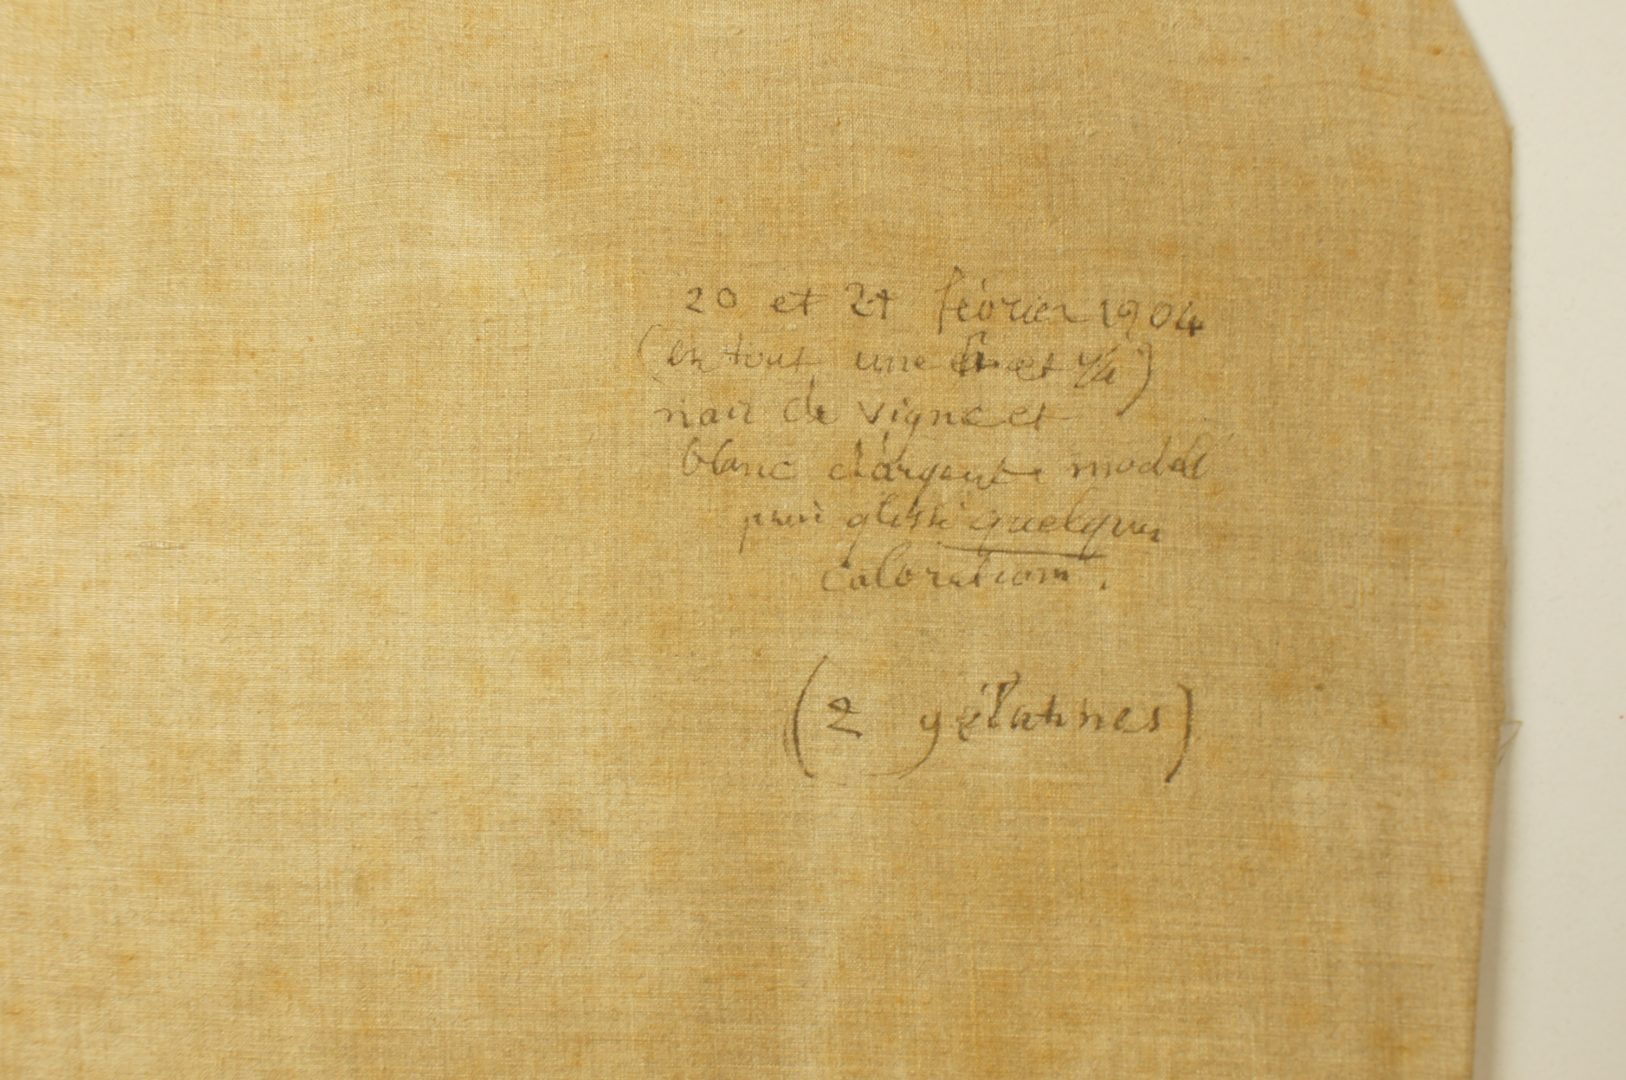 20 et 21 février 1904
(en tout une h et 1/4)
noir de vigne et
blanc d'argent. modelé
puis glissé quelques
colorations.
(2 gélatines)